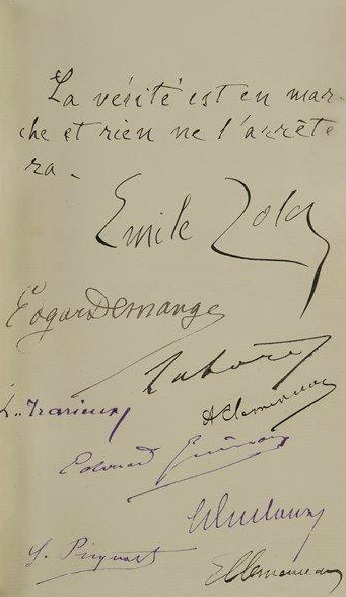 La vérité est en mar-
che et rien ne l'arrête
ra.
Emile Zola
Edgar Demange
Labori
L. Trarieux
A Clemenceau
Edouard Grimaux
G. Picquart
GClemenceau